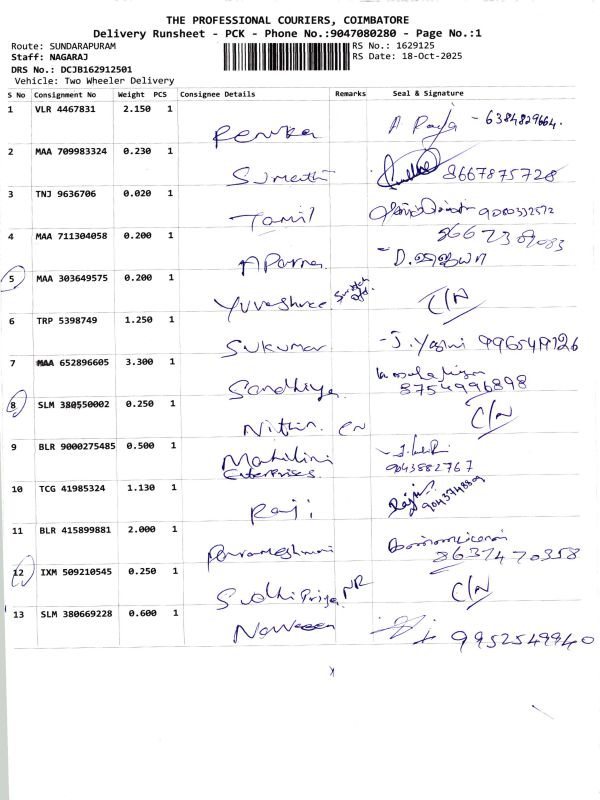 THE PROFESSIONAL COURIERS, COIMBATORE
Delivery Runsheet - PCK - Phone No.:9047080280 - Page No.:1
Route: SUNDARAPURAM RS No.: 1629125
Staff: NAGARAJ RS Date: 18-Oct-2025
DRS No.: DCJB162912501
Vehicle: Two Wheeler Delivery
S No Consignment No Weight PCS Consignee Details Remarks Seal & Signature
1 VLR 4467831 2.150 1
Renuka A Raja - 6384829664.
2 MAA 709983324 0.230 1
Sumathi 8667875728
3 TNJ 9636706 0.020 1
Tamil 9080332572
4 MAA 711304058 0.200 1
Aparna 8667389083
5 MAA 303649575 0.200 1
Yuvashree Switch off. C/N
6 TRP 5398749 1.250 1
Sukumar - J. Yazini
7 MAA 652896605 3.300 1
Sandhiya 8754996898
8 SLM 380550002 0.250 1
Nithin CN C/N
9 BLR 9000275485 0.500 1
Mahilini Enterprises. 9043882767
10 TCG 41985324 1.130 1
Raji
11 BLR 415899881 2.000 1
Parameshwari 8637470358
12 IXM 509210545 0.250 1
SudhiPriya NR C/N
13 SLM 380669228 0.600 1
Naveen 9952549940